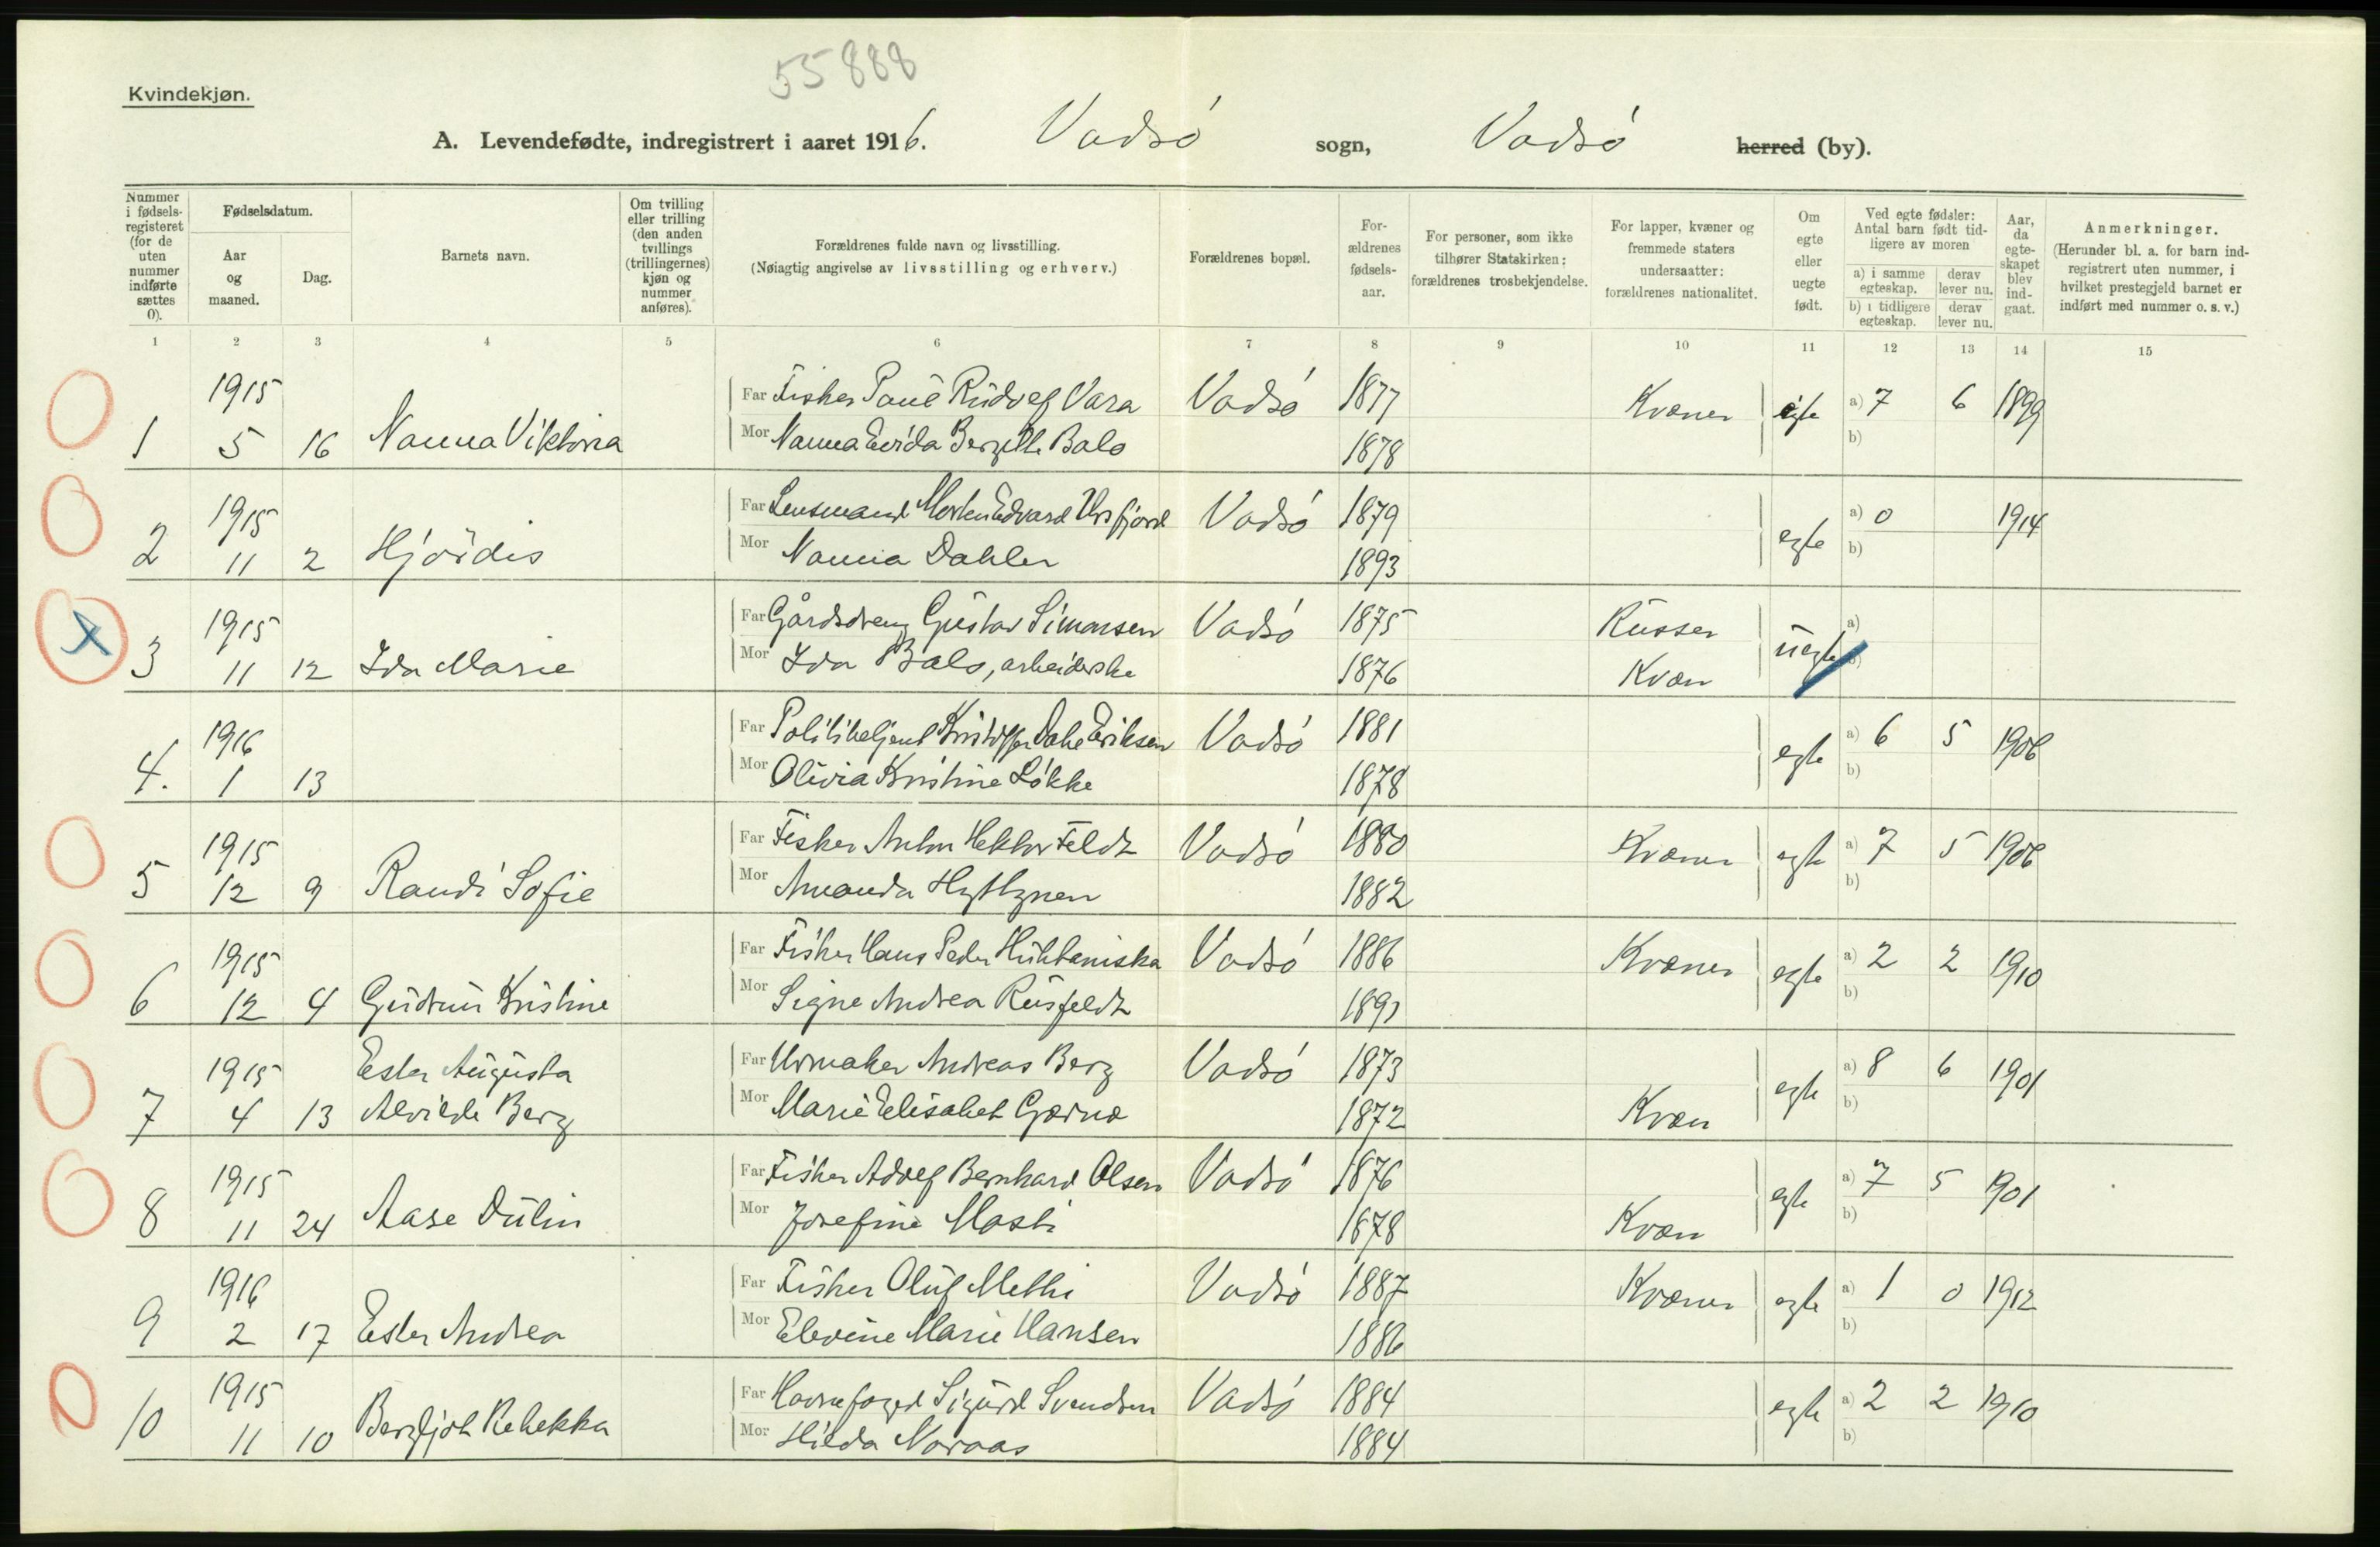 55888
Kvindekjøn.
A. Levendefødte, indregistrert i aaret 1916. Vadsö sogn, Vadsö herred (by).
Nummer i fødsels-registeret (for de uten nummer indførte sættes 0).
Fødselsdatum.
Aar og maaned.
Dag.
Barnets navn.
Om tvilling eller trilling (den anden tvillings (trillingernes) kjøn og nummer anføres).
Forældrenes fulde navn og livsstilling.
(Nøiagtig angivelse av livsstilling og erhverv.)
Forældrenes bopæl.
For-ældrenes fødsels-aar.
For personer, som ikke tilhører Statskirken: forældrenes trosbekjendelse.
For lapper, kvæner og fremmede staters undersaatter: forældrenes nationalitet.
Om egte eller uegte født.
Ved egte fødsler: Antal barn født tid-ligere av moren
a) i samme egteskap. derav lever nu.
b) i tidligere egteskap. derav lever nu.
Aar, da egte-skapet blev ind-gaat.
Anmerkninger.
(Herunder bl. a. for barn ind-registrert uten nummer, i hvilket prestegjeld barnet er indført med nummer o. s. v.)
1 2 3 4 5 6 7 8 9 10 11 12 13 14 15
1915 Far Fisker Paul Rudolf Vara Vadsö 1877 Kvæner egte a) 7 6 1899
1 5 16 Nanna Viktoria Mor Nanna Evida Bergitte Balo 1878 b)
1915 Far Lensmand Morten Edvard Ursfjord Vadsö 1879 egte a) 0 1914
2 11 2 Hjördis Mor Nanna Dahler 1893 b)
1915 Far Gårdsdreng Gustav Simonsen Vadsö 1875 Russer uegte a)
3 11 12 Ida Marie Mor Ida Balo, arbeiderske 1876 Kvæn b)
1916 Far Politibetjent Kristoffer Dahe Eriksen Vadsö 1881 egte a) 6 5 1906
4. 1 13 Mor Olivia Kristine Lökke 1878 b)
1915 Far Fisker Anton Hektor Feldt Vadsö 1880 Kvæner egte a) 7 5 1906
5 12 9 Randi Sofie Mor Amanda Hyttynen 1882 b)
1915 Far Fisker Hans Peder Huhtaniska Vadsö 1886 Kvæner egte a) 2 2 1910
6 12 4 Gudrun Kristine Mor Signe Andrea Rusfeldt 1891 b)
1915 Ester Augusta Far Urmaker Andreas Berg Vadsö 1873 egte a) 8 6 1901
7 4 13 Alvilde Berg Mor Marie Elisabet Gærna 1872 Kvæn b)
1915 Far Fisker Adolf Bernhard Olsen Vadsö 1876 egte a) 7 5 1901
8 11 24 Aase Dulin Mor Josefine Masti 1878 Kvæn b)
1916 Far Fisker Oluf Methi Vadsö 1887 Kvæner egte a) 1 0 1912
9 2 17 Ester Andrea Mor Elevine Marie Hansen 1886 b)
1915 Far Havnefoged Sigurd Svendsen Vadsö 1884 egte a) 2 2 1910
10 11 10 Bergljot Rebekka Mor Hilda Noraas 1884 b)